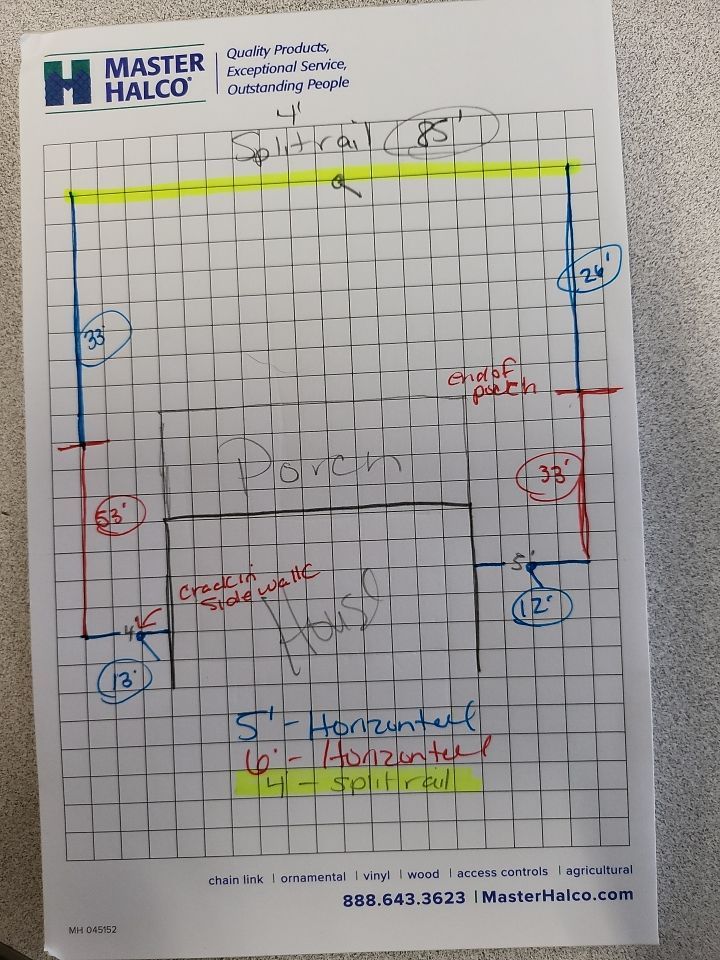 MASTER HALCO
Quality Products,
Exceptional Service,
Outstanding People
4'
Splitrail 85'
26'
33'
end of
porch
Porch
33'
53'
crack in
side walk
5'
4'
House
12'
13'
5' - Horizontal
6' - Horizontal
4' - splitrail
chain link | ornamental | vinyl | wood | access controls | agricultural
888.643.3623 | MasterHalco.com
MH 045152